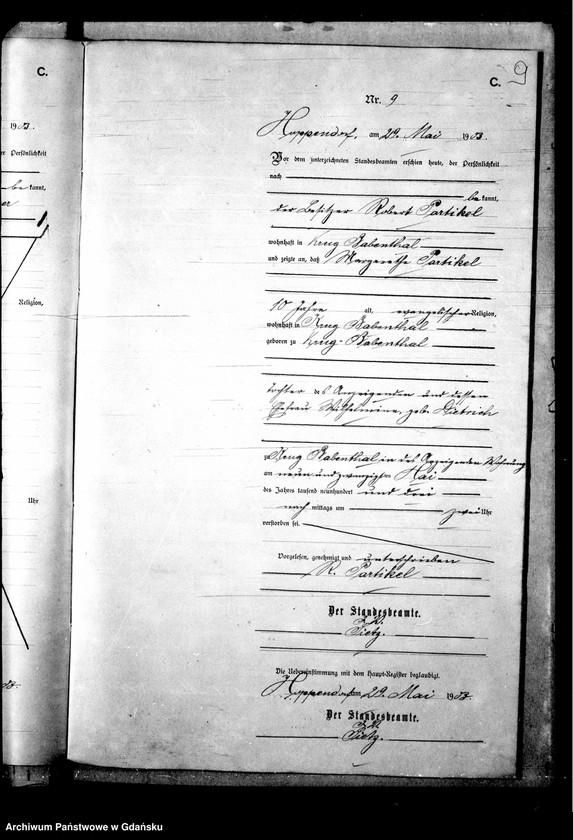 C.
1903.
er Persönlichkeit
be kannt,
Religion,
Uhr
C. 9
Nr. 9
Hoppendorf, am 29. Mai 1903.
Vor dem unterzeichneten Standesbeamten erschien heute, der Persönlichkeit
nach
be kannt,
der Besitzer Robert Partikel
wohnhaft in Krug Babenthal
und zeigte an, daß Margarethe Partikel
10 Jahre alt, evangelischer Religion,
wohnhaft in Krug Babenthal
geboren zu Krug-Babenthal
Tochter des Anzeigenden und dessen
Ehefrau Wilhelmine, geb. Dietrich
zu Krug Babenthal in des Anzeigenden Wohnung
am neun und zwanzigsten Mai
des Jahres tausend neunhundert und drei
nach mittags um zwei Uhr
verstorben sei.
Vorgelesen, genehmigt und unterschrieben
R. Partikel
Der Standesbeamte.
Tietz.
Die Uebereinstimmung mit dem Haupt-Register beglaubigt.
Hoppendorf am 29. Mai 1903.
Der Standesbeamte.
Tietz.
Archiwum Państwowe w Gdańsku